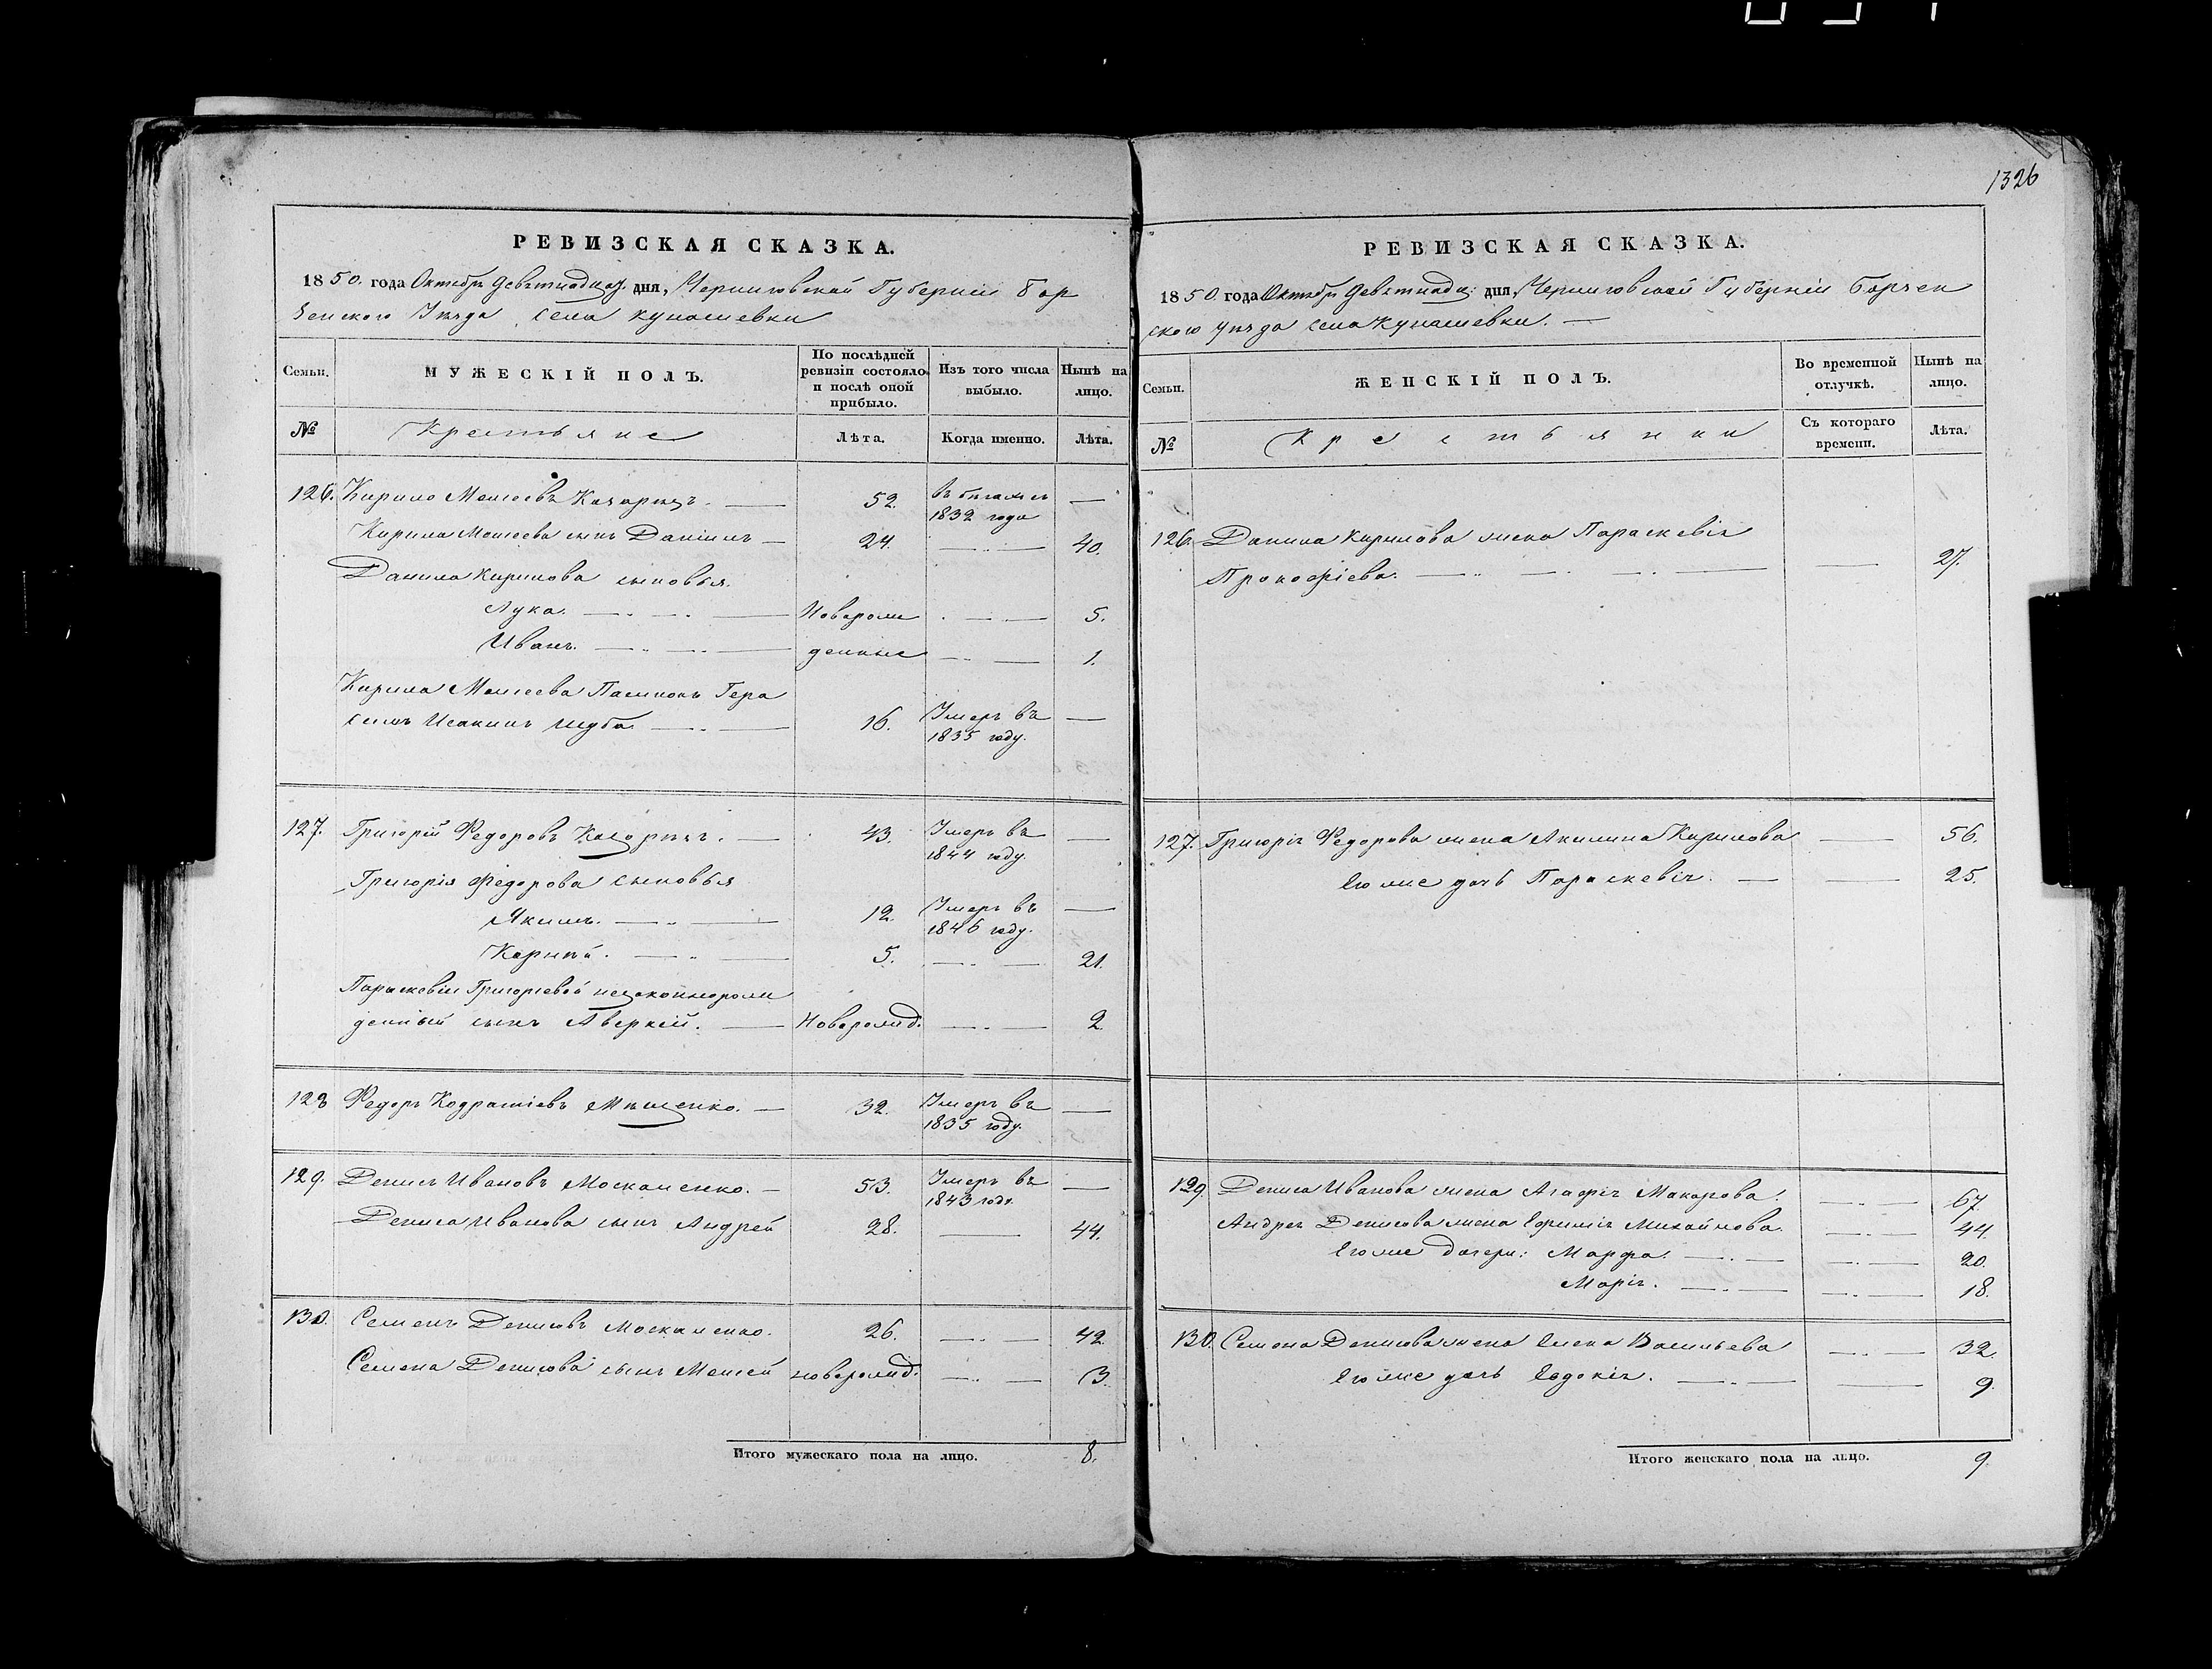 1326
РЕВИЗСКАЯ СКАЗКА.
1850. года Октября девятнадцат. дня, Черниговской Губерніи Бор
зенского Уезда села Кунашевки
Семьи.
МУЖЕСКІЙ ПОЛЪ.
По послѣдней ревизіи состояло и послѣ оной прибыло.
Изъ того числа выбыло.
Нынѣ на лицо.
№
Крестьяне
Лѣта.
Когда именно.
Лѣта.
126. Кирило Моисеевъ 52. въ бегахъ съ —
1832 года
Кирила Моисеева сынъ Даніилъ — 24. — 40.
Данила Кирилова сыновья
Лука. — Новорож — 5.
Иванъ. — денные — 1.
Кирила Моисеева Пасынокъ Гера
симъ Исакинъ Шуба. — 16. Умеръ въ —
1835 году.
127. Григорій Федоровъ — 43. Умеръ въ —
1844 году.
Григорія Федорова сыновья
Якимъ. — 12. Умеръ въ —
1846 году.
Корнѣй. — 5. — 21.
Параскевіи Григорьевой незаконнорож
денный сынъ Аверкій. — Новорожд. — 2.
128 Федоръ Кодратіевъ Мищенко. — 32. Умеръ въ —
1835 году.
129. Денисъ Ивановъ Москаленко. — 53. Умеръ въ —
1843 годе.
Дениса Иванова сынъ Андрей 28. — 44.
130. Семенъ Денисовъ Москаленко. 26. — 42.
Семена Денисова сынъ Моисей новорожд. — 3.
Итого мужескаго пола на лицо. 8.
РЕВИЗСКАЯ СКАЗКА.
1850. года Октября девятнадц: дня, Черниговской Губерніи Борзен
ского уезда села Кунашевки. —
Семьи.
ЖЕНСКІЙ ПОЛЪ.
Во временной отлучкѣ.
Нынѣ на лицо.
№
Крестьянки
Съ котораго времени.
Лѣта.
126. Данила Кирилова жена Параскевія
Прокофіева. — — 27.
127. Григорія Федорова жена Акилина Кирилова — 56.
Его же дочь Параскевія. — — 25.
129 Дениса Иванова жена Агафія Макарова. — 67.
Андрея Денисова жена Ефимія Михайлова. — 44.
Его же дочери: Марфа. — — 20.
Марія. — — 18.
130. Семена Денисова жена Елена Васильева — 32.
Его же дочь Евдокія. — — 9.
Итого женскаго пола на лицо. 9